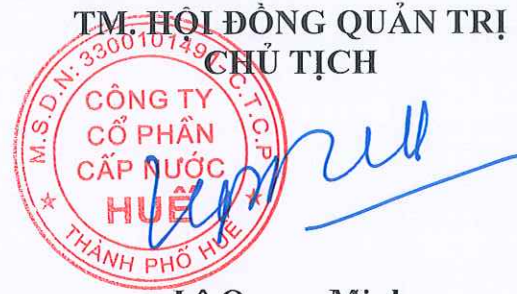 TM. HỘI ĐỒNG QUẢN TRỊ
CHỦ TỊCH
M.S.D.N: 3300101491-C.T.C.P
CÔNG TY
CỔ PHẦN
CẤP NƯỚC
HUẾ
THÀNH PHỐ HUẾ